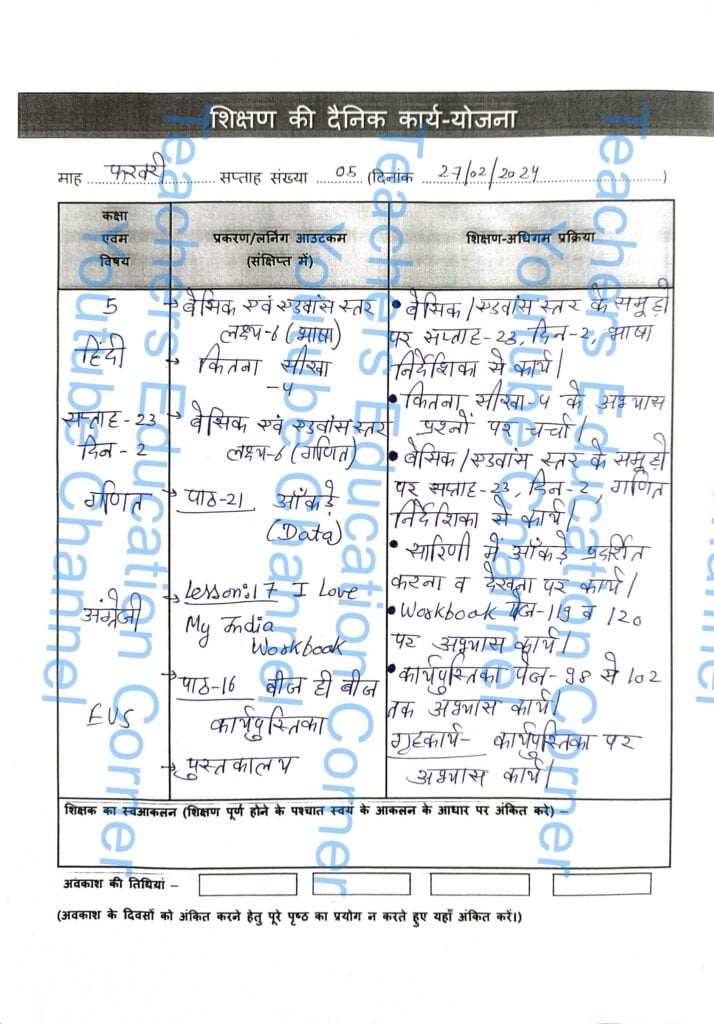 शिक्षण की दैनिक कार्य-योजना
माह फरवरी सप्ताह संख्या 05 (दिनांक 27/02/2024)
कक्षा
एवम
विषय
प्रकरण/लर्निंग आउटकम
(संक्षिप्त में)
शिक्षण-अधिगम प्रक्रिया
5
हिंदी
सप्ताह-23
दिन-2
गणित
अंग्रेजी
EVS
→ बेसिक एवं एडवांस स्तर
लक्ष्य-6 (भाषा)
→ कितना सीखा
-4
→ बेसिक एवं एडवांस स्तर
लक्ष्य-6 (गणित)
→ पाठ-21 आँकड़े
(Data)
→ Lesson:17 I Love
My India
Workbook
→ पाठ-16 बीज ही बीज
कार्यपुस्तिका
→ पुस्तकालय
• बेसिक/एडवांस स्तर के समूहों
पर सप्ताह-23, दिन-2, भाषा
निर्देशिका से कार्य।
• कितना सीखा-4 के अभ्यास
प्रश्नों पर चर्चा।
• बेसिक/एडवांस स्तर के समूहों
पर सप्ताह-23, दिन-2, गणित
निर्देशिका से कार्य।
• सारिणी में आँकड़े प्रदर्शित
करना व देखना पर कार्य।
• Workbook पेज-119 व 120
पर अभ्यास कार्य।
• कार्यपुस्तिका पेज-98 से 102
तक अभ्यास कार्य।
गृहकार्य- कार्यपुस्तिका पर
अभ्यास कार्य।
शिक्षक का स्वआकलन (शिक्षण पूर्ण होने के पश्चात स्वयं के आकलन के आधार पर अंकित करे) –
अवकाश की तिथियां –
(अवकाश के दिवसों को अंकित करने हेतु पूरे पृष्ठ का प्रयोग न करते हुए यहाँ अंकित करें।)
Teachers Education Corner
Youtube Channel
Teachers Education Corner
Youtube Channel
Teachers Education Corner
Youtube Channel